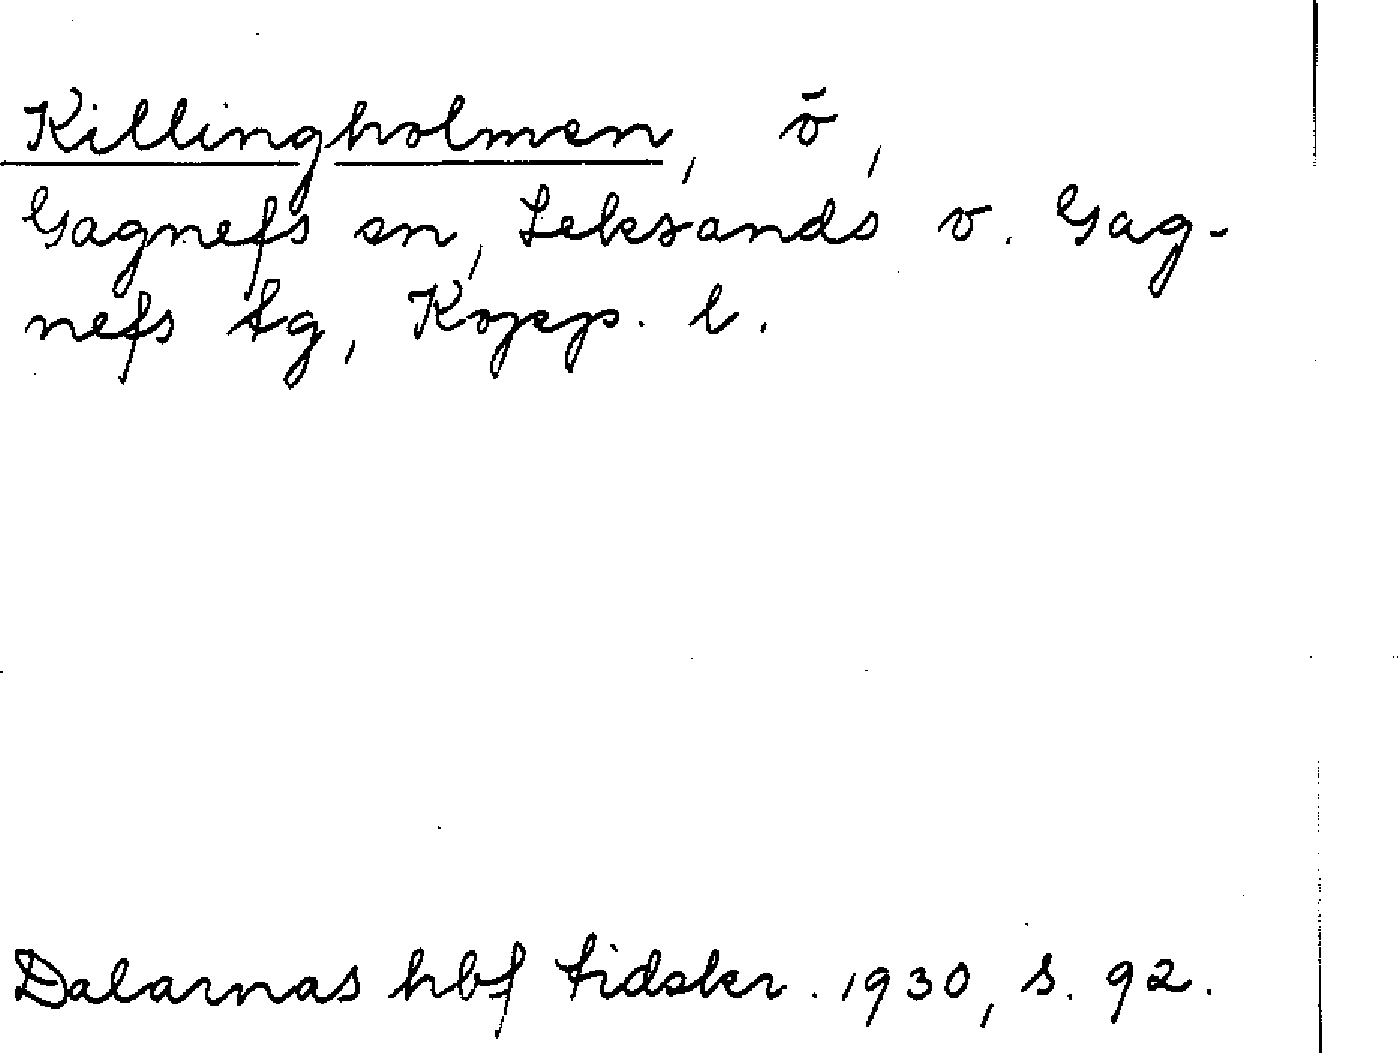 Killingholmen, ö,
Gagnefs sn, Leksands o. Gag-
nefs tg, Kopp. l.
Dalarnas hbf tidskr. 1930, s. 92.